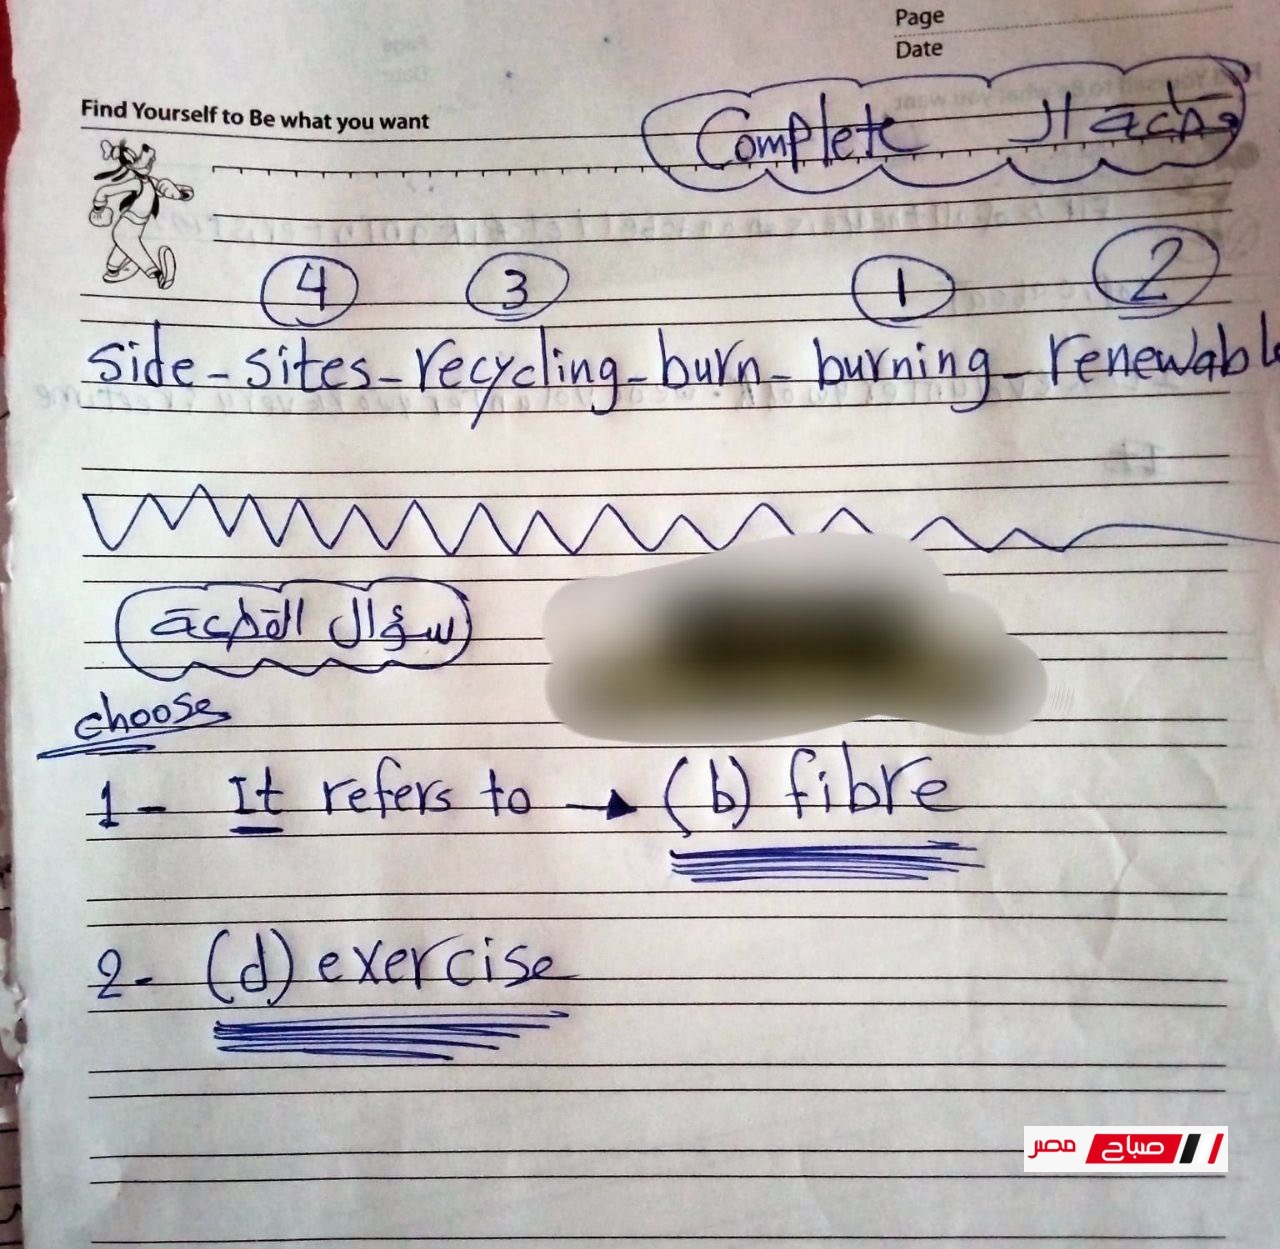 Page
Date
Find Yourself to Be what you want
قطعة ال Complete
4 3 1 2
side - sites - recycling - burn - burning - renewabl
سؤال القطعة
choose
1- It refers to → (b) fibre
2- (d) exercise
صباح مصر